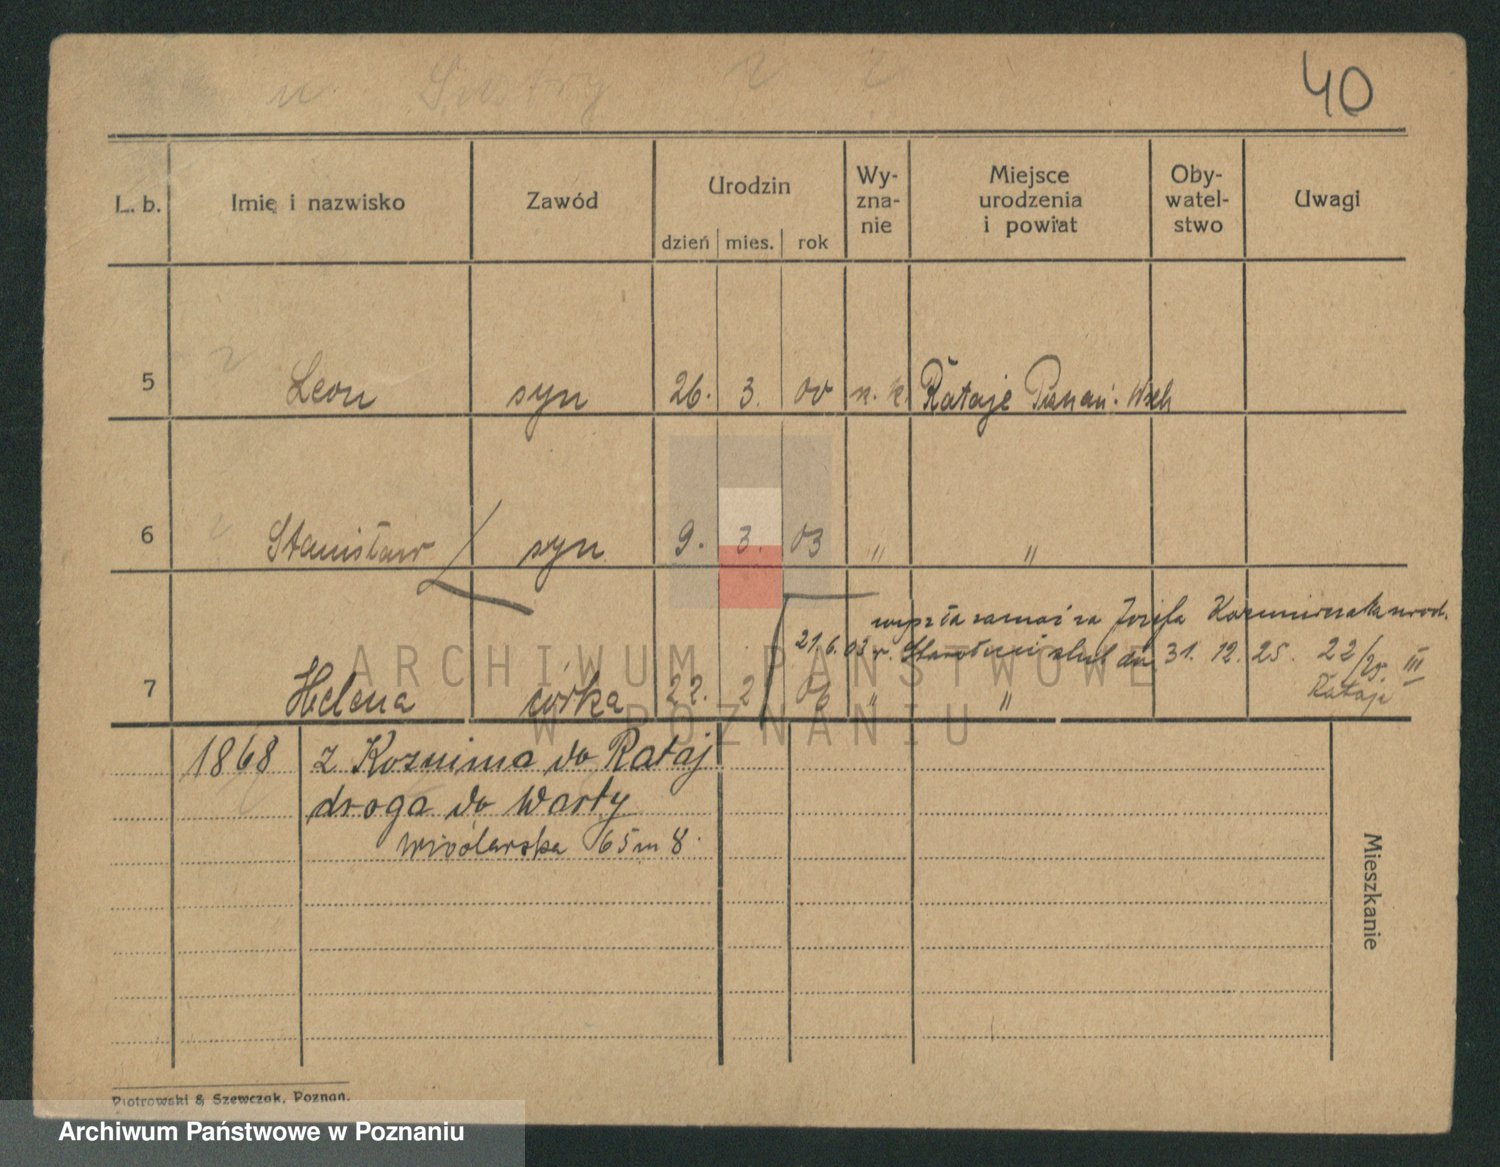 40
L. b. Imię i nazwisko Zawód Urodzin dzień mies. rok Wy-zna-nie Miejsce urodzenia i powiat Oby-watel-stwo Uwagi
5 Leon syn 26. 3. 00 r. k. Rataje Poznań. Wsch
6 Stanisław syn 9. 3. 03 " "
wyszła zamąż za Józefa Kaźmierczaka urod.
21. 6. 03 r. ślub dn 31. 12. 25. 22/25. III
Rataje
7 Helena córka 22. 2 06 " "
1868 z Koźmina do Rataj
droga do Warty
65 m 8.
Mieszkanie
Piotrowski & Szewczak, Poznań.
ARCHIWUM PAŃSTWOWE
W POZNANIU
Archiwum Państwowe w Poznaniu